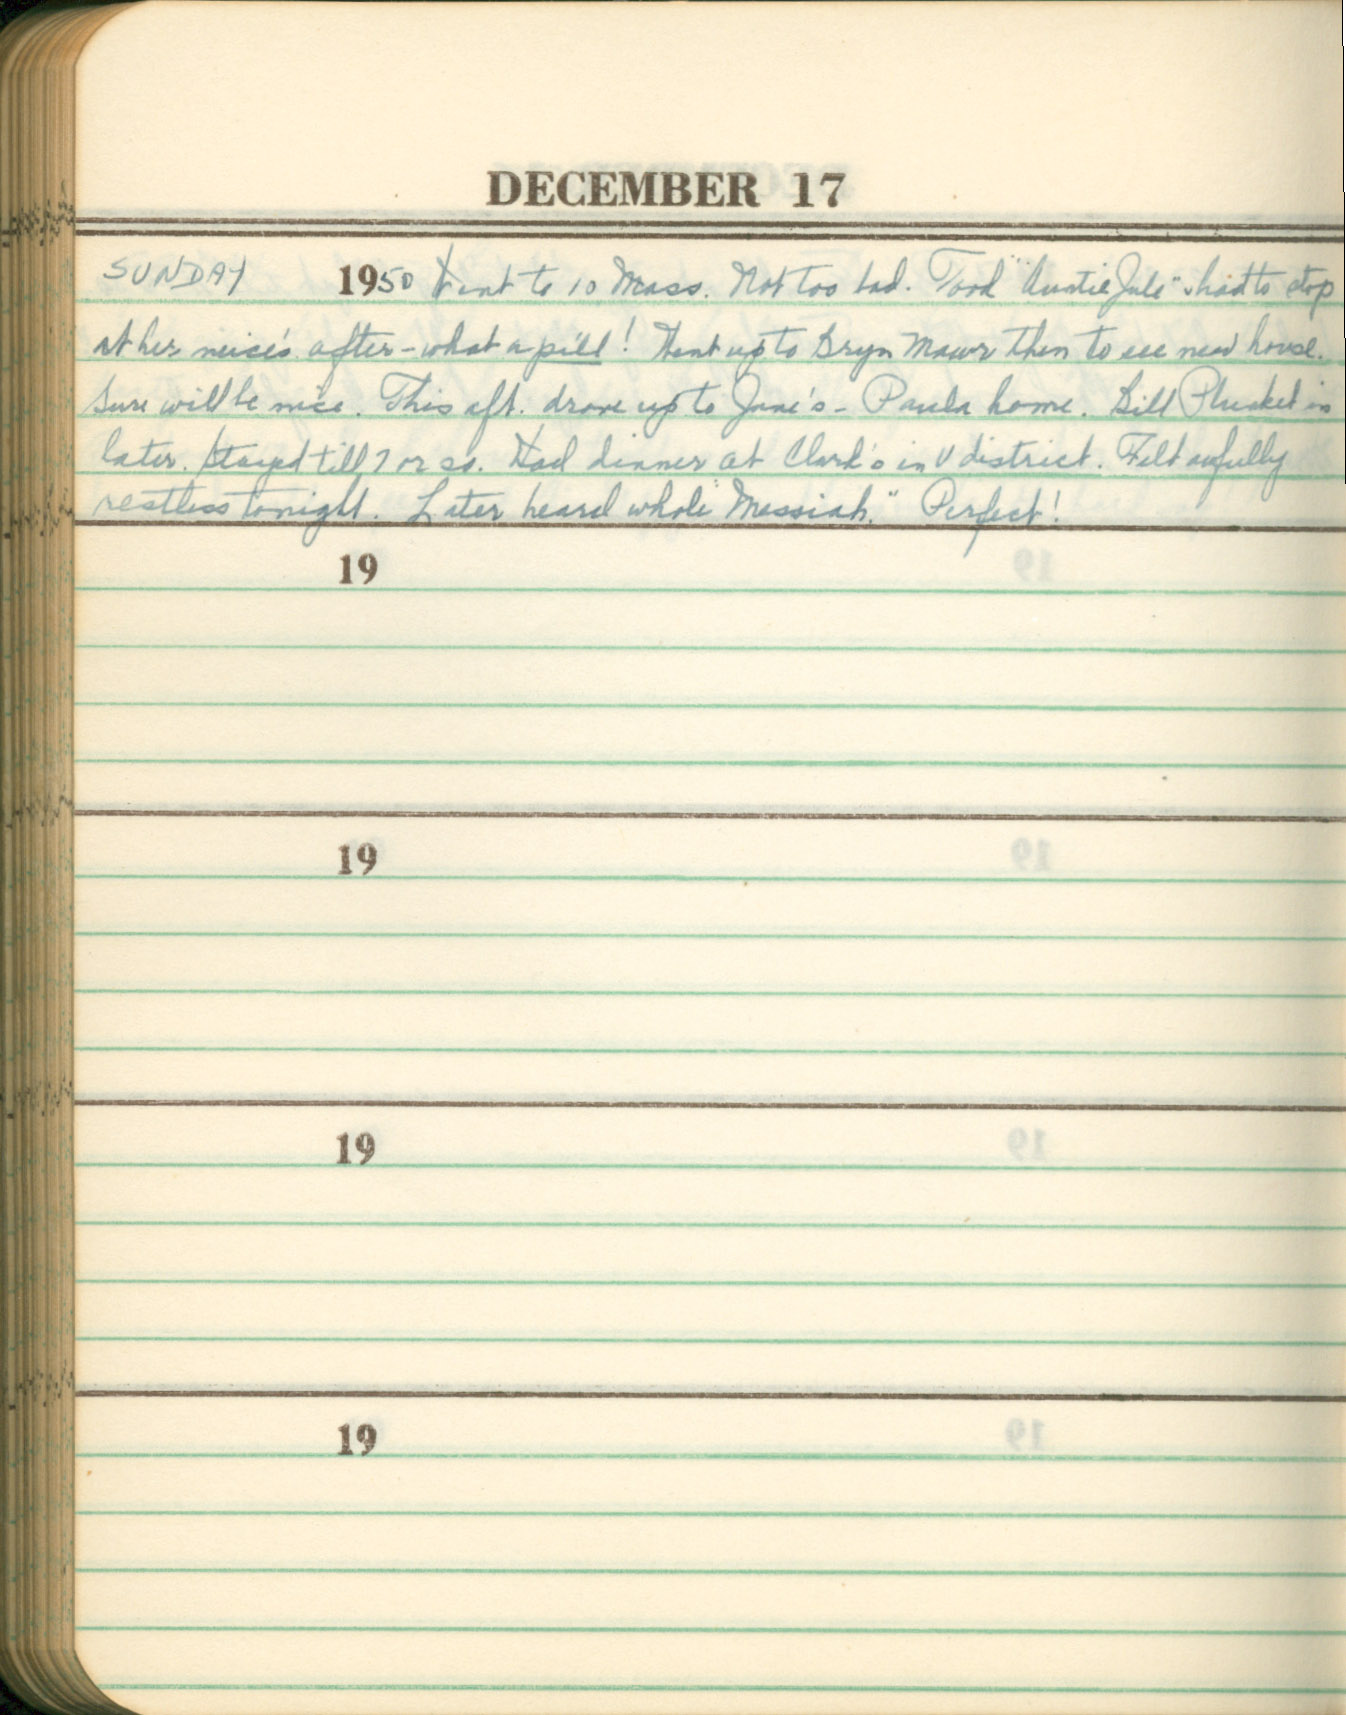 DECEMBER 17
SUNDAY 1950 Went to 10 Mass. Not too bad. "Auntie Jule" had to stop
at her neice's after - what a pill! Went up to Bryn Mawr then to see new house.
Sure will be nice. This aft. drove up to Jane's - Paula home. Bill Plunket in
later. Stayed till 7 or so. Had dinner at Clark's in U district. Felt awfully
restless tonight. Later heard whole "Messiah." Perfect!
19
19
19
19